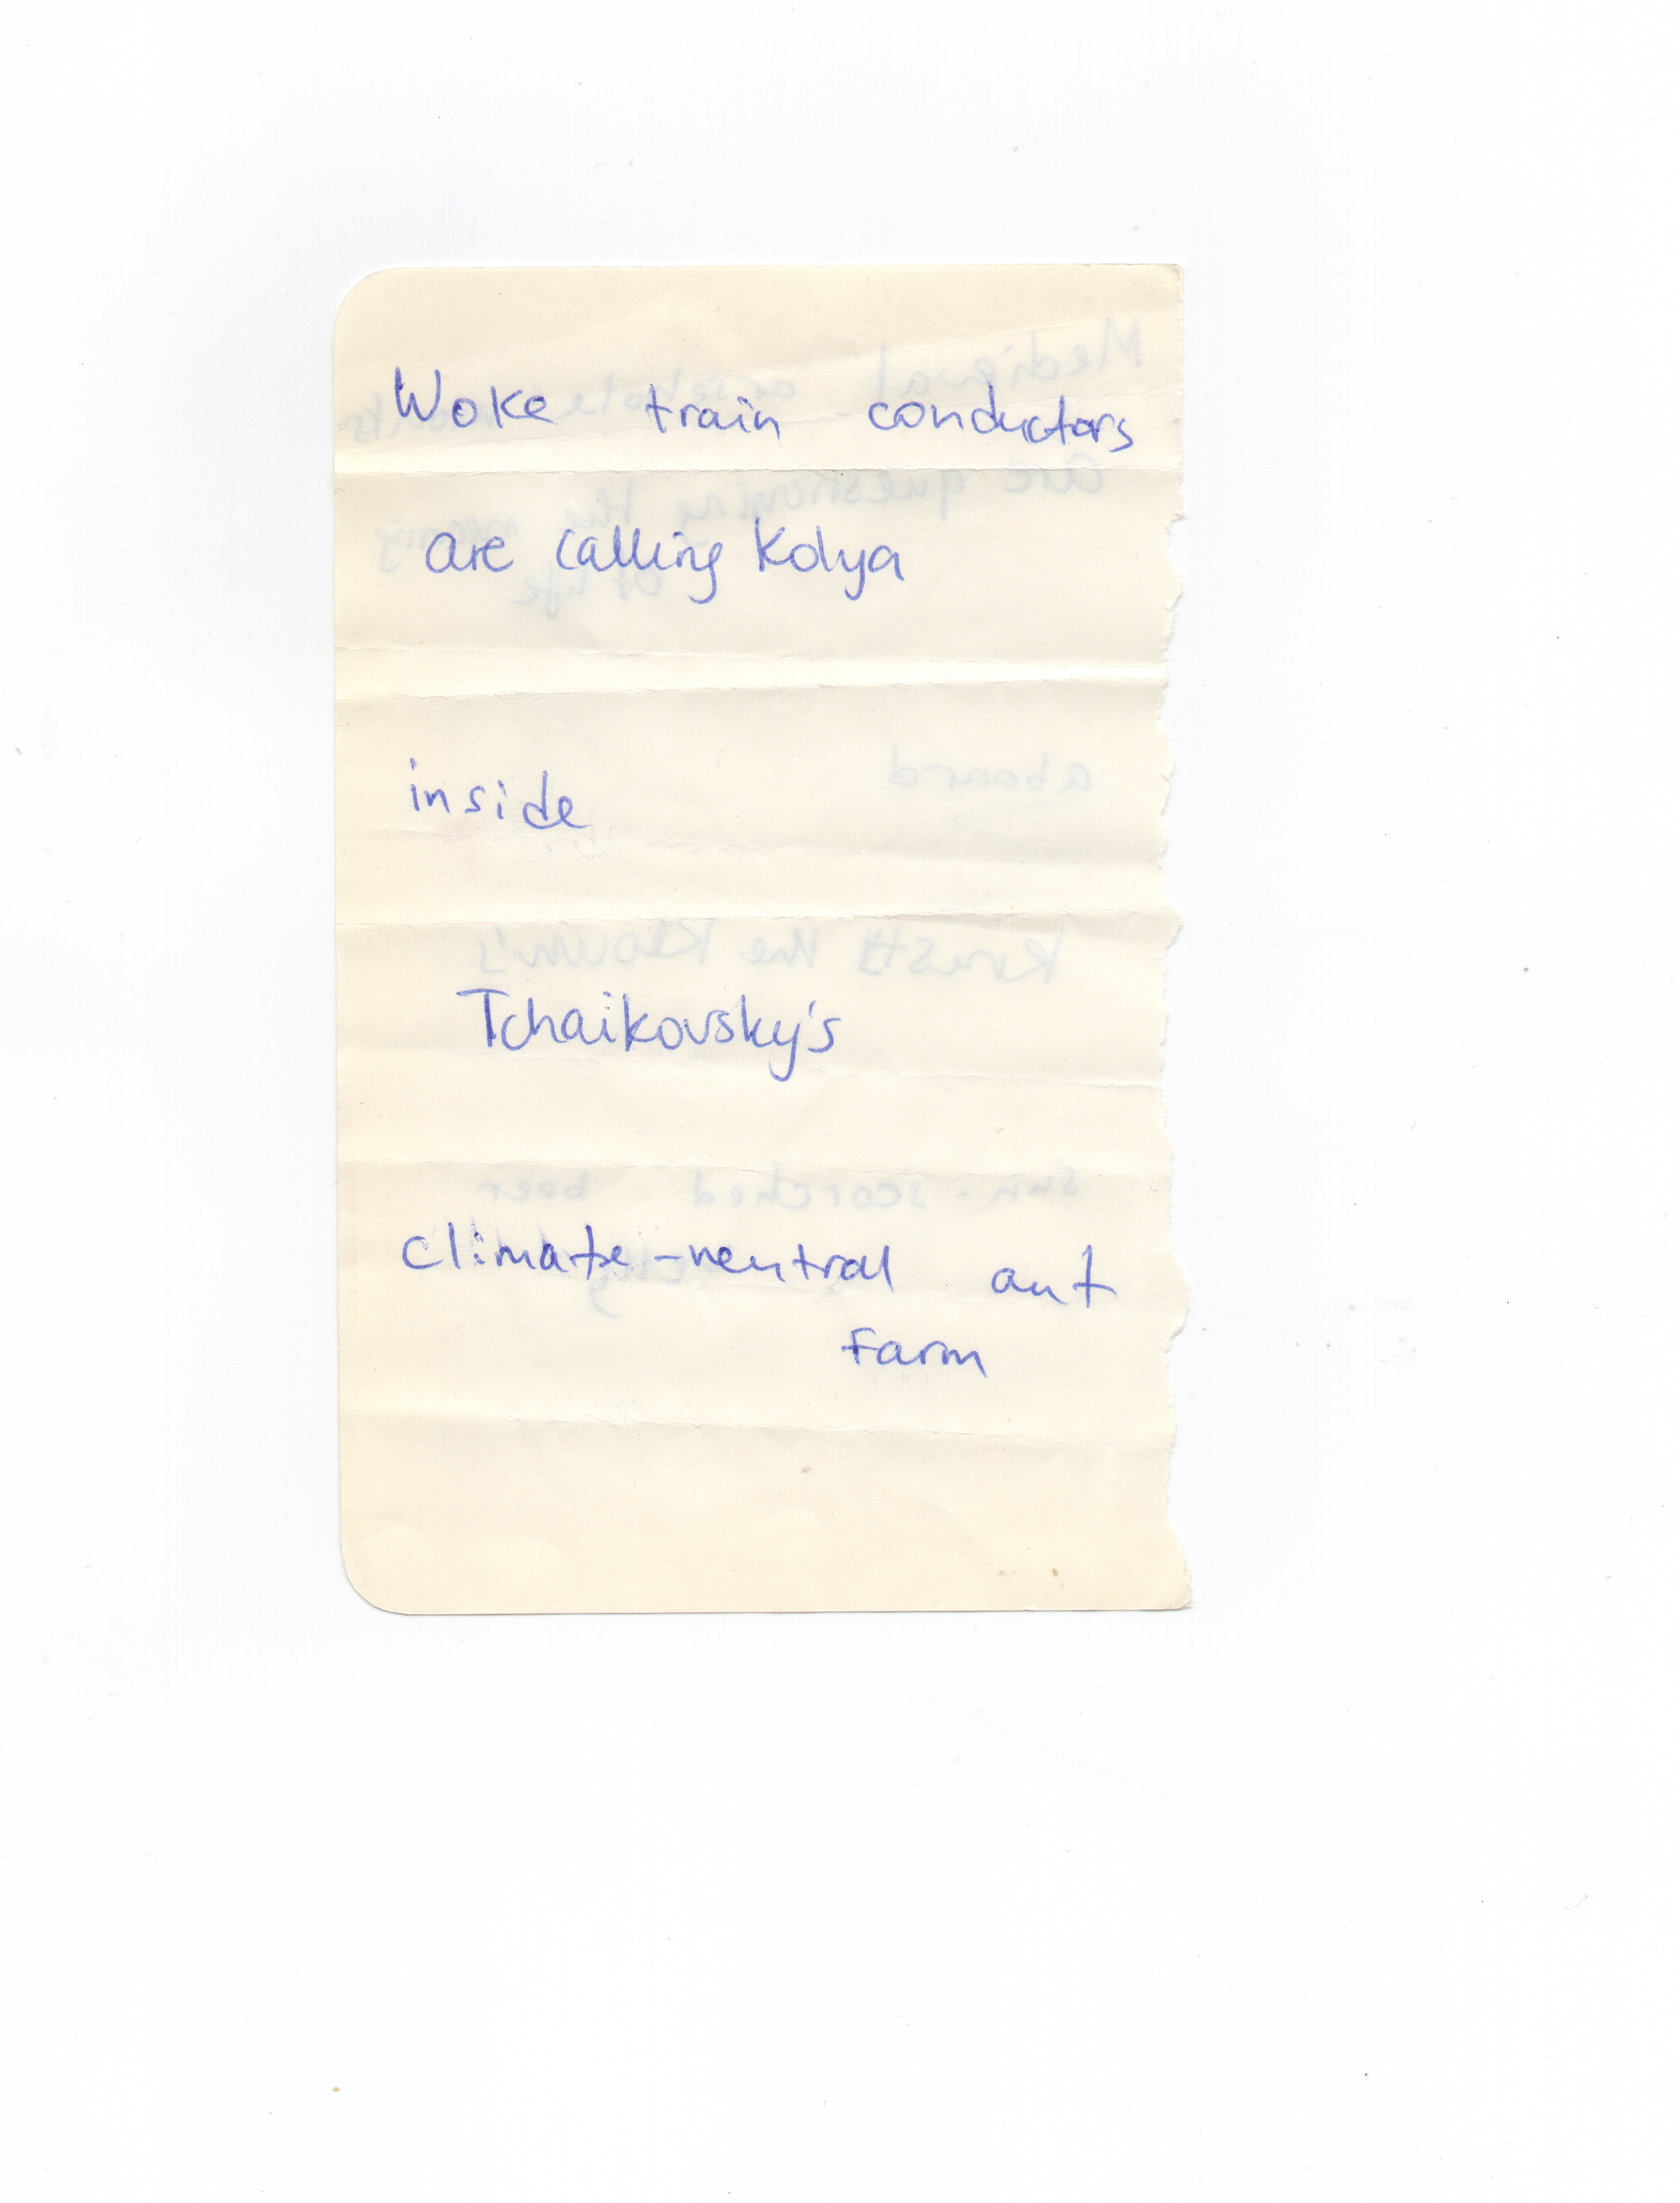 Woke train conductors
are calling Kolya
inside
Tchaikovsky's
climate-neutral ant
farm